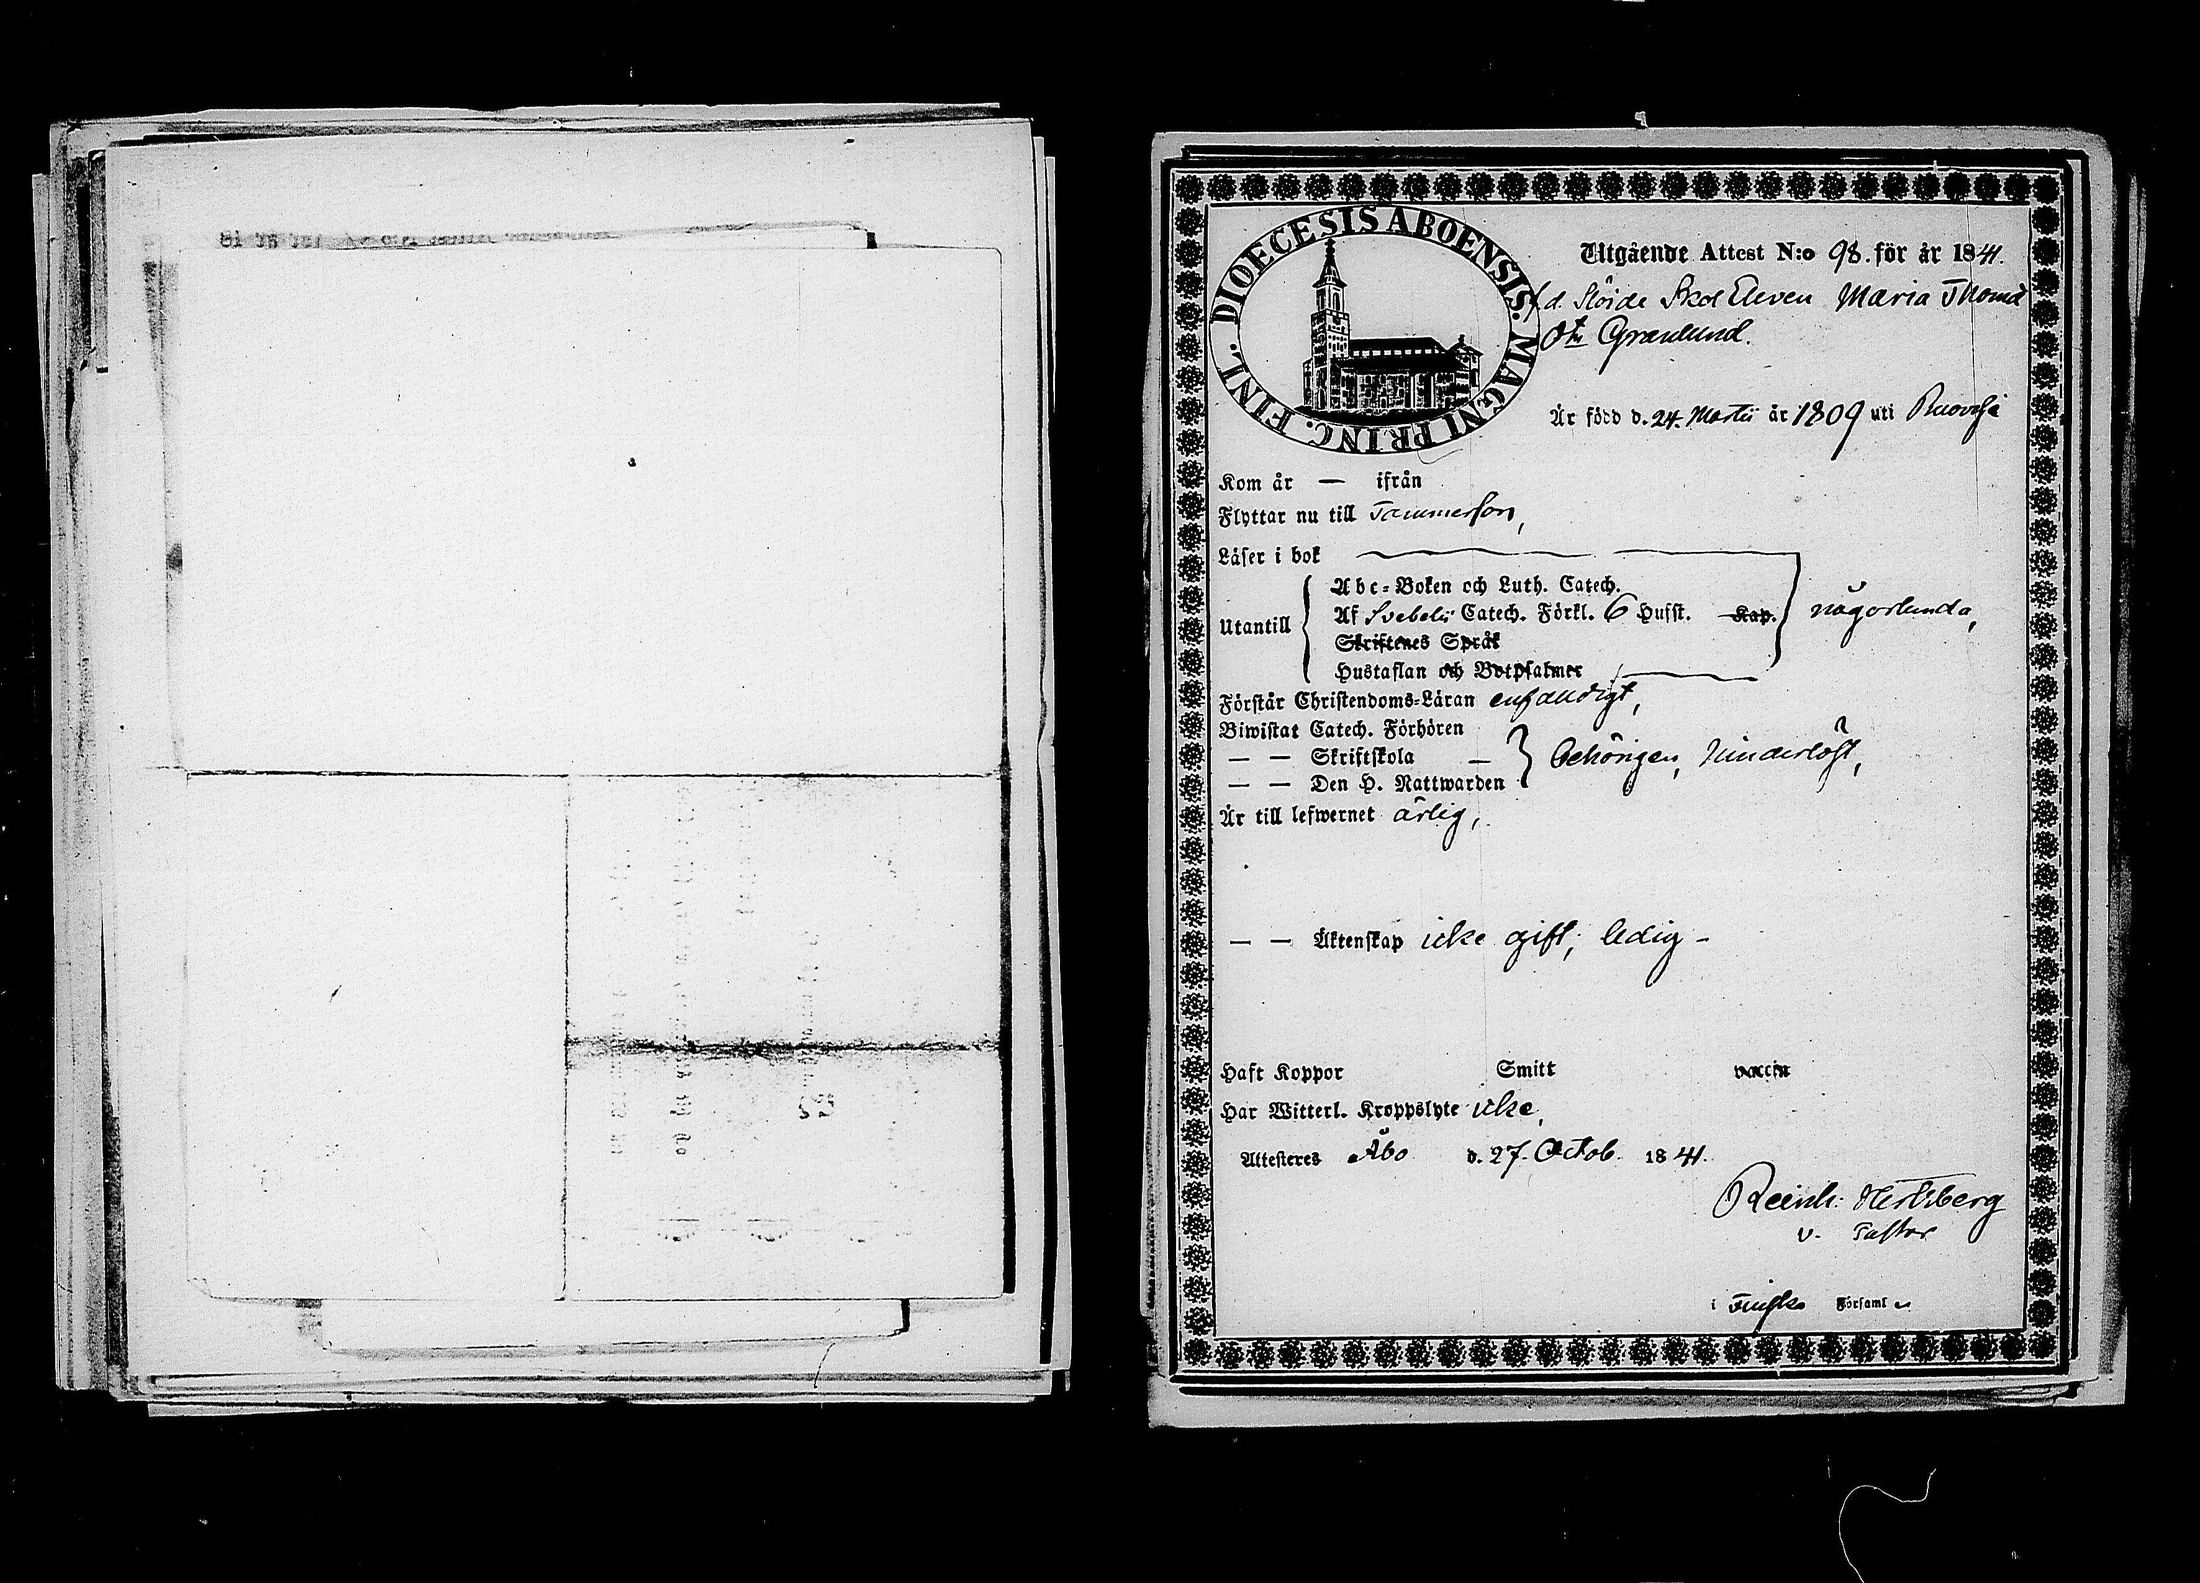 DIOECESIS ABOENSIS. MAGNI PRINC. FINL.
Utgående Attest N:o 98. för år 1841.
f.d. Slöide Skol Eleven Maria Thomæ
Dtr Granlund.
Är född d. 24. Martii år 1809 uti Ruovesi
Kom år — ifrån
Flyttar nu till Tammerfors,
Läser i bok
Abc-Boken och Luth. Catech.
Utantill Af Svebelii Catech. Förkl. 6 Hufst. Kap. någorlunda,
Skriftenes Språk
Hustaflan och Botpsalmer
Förstår Christendoms-Läran enfaldigt,
Biwistat Catech. Förhören
— — Skriftskola — behörigen, hinderlöst,
— — Den H. Nattwarden
Är till lefwernet ärlig,
— — Äktenskap icke gift, ledig -
Haft Koppor Smitt vaccin
Har Witterl. Kroppslyte icke,
Attesteres Åbo d. 27. Octob. 1841.
Reinh: Hertzberg
v. Pastor
i Finska Församl